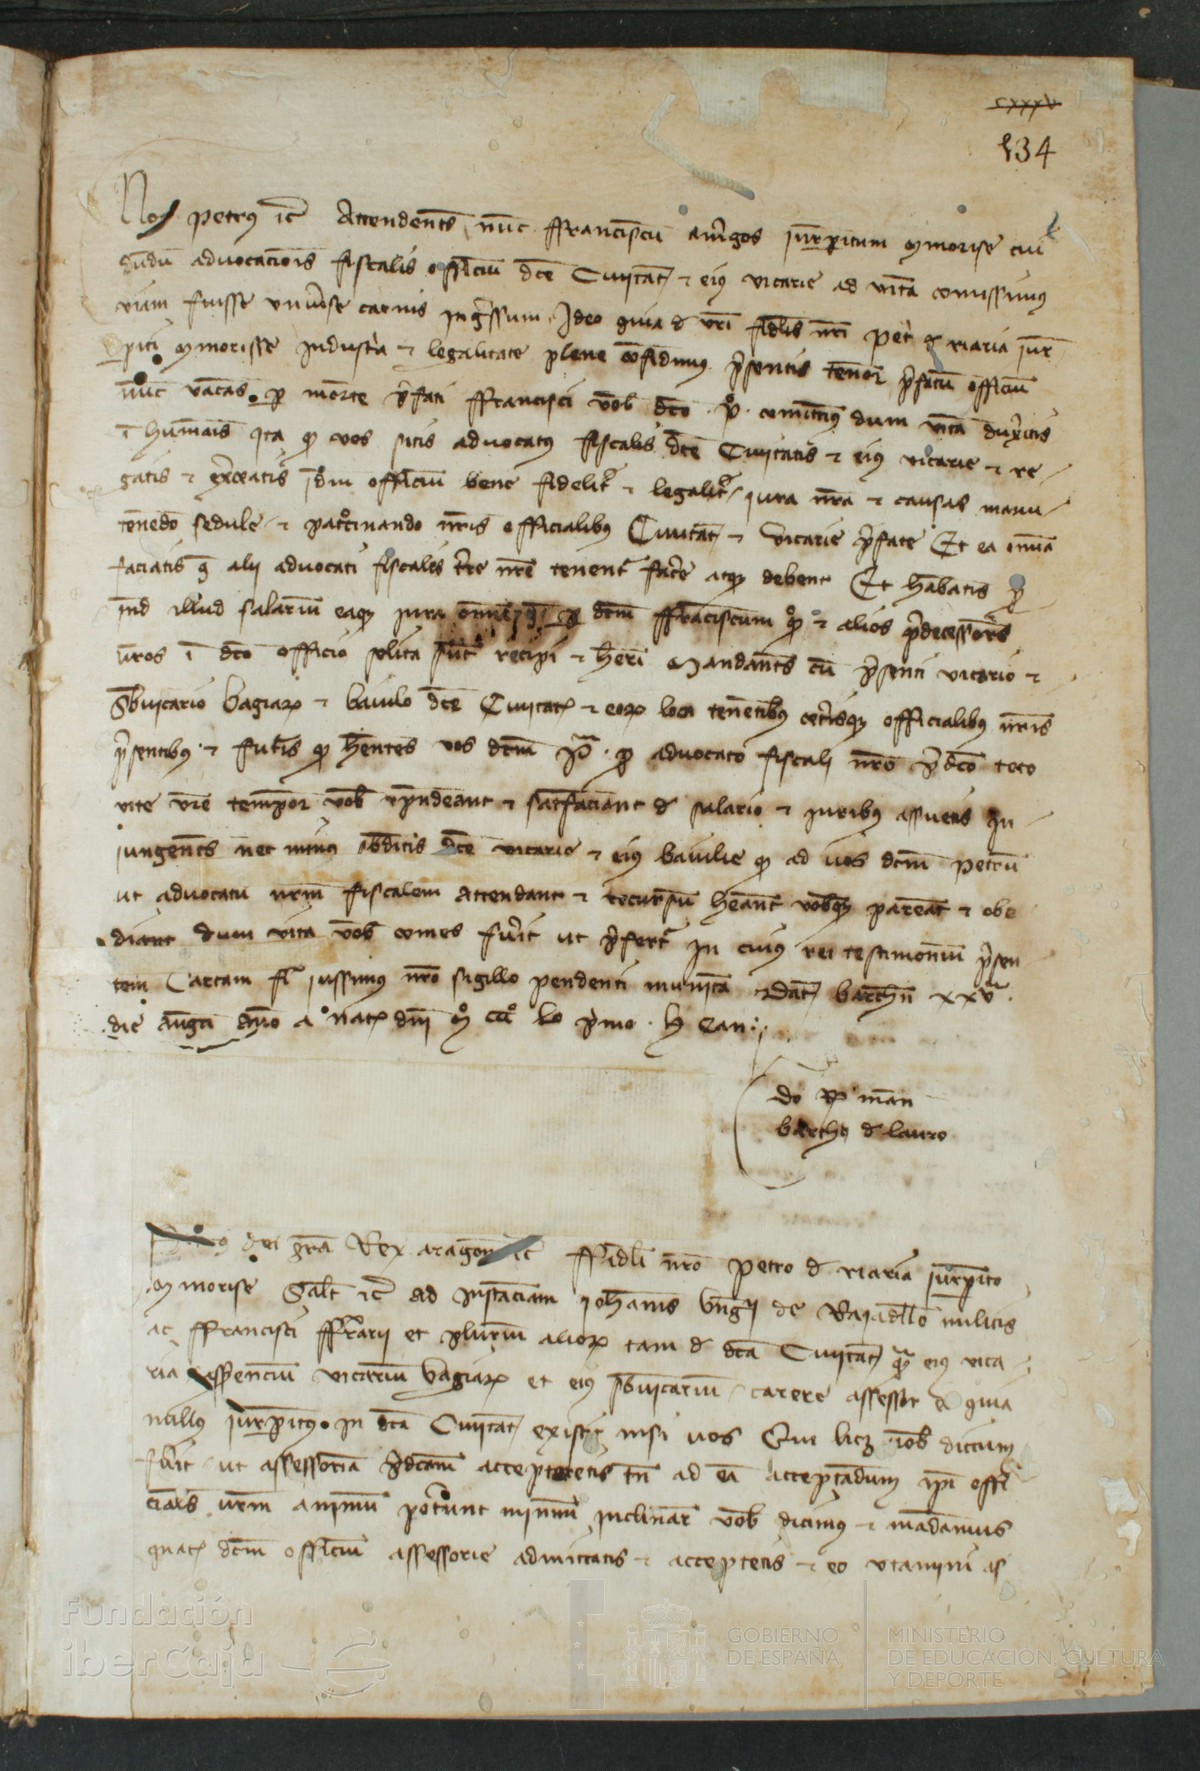 cxxxv
134
Nos petrus etc Attendentes nunc ffranciscum amigos jurperitum Minorise cui
dudum advocacionis fiscalis officium dce Civitat et eius vicarie ad vitam comissimus
viam fuisse universe carnis ingressum Ideo quia de vri fidelis nri Petri de riaria jur
periti Minorisse industria et legalitate plene confidimus presentis tenore prefatum officium
nunc vacans per mortem prefati ffrancisci vob dco P. comittimus dum vitam duxeritis
in humanis ita quod vos sitis advocatus fiscalis dce Civitatis et eius vicarie et re
gatis et exerceatis idem officium bene fideliter et legaliter jura nra et causas manu
tenendo sedule et patrocinando nris officialibus Civitat et vicarie prefate Et ea omnia
faciatis que alii advocati fiscales tre nre tenentur facere atque debent Et habeatis pro
inde illud salarium eaque jura omnia que per dcm ffranciscum quondam et alios predecessores
vros in dco officio solita sunt recipi et heri Mandantes cum presenti vicario et
subvicario bagiarum et baiulo dce Civitat et eorum loca tenentibus ceterisque officialibus nris
presentibus et futuris quod hentes vos dcm P. pro advocato fiscali nro predco toto
vite vre tempore vob respondeant et satisfaciant de salario et juribus assuetis In
jungentes nec minus subditis dce vicarie et eius baiulie quod ad vos dcm Petrum
ut advocatum nrm fiscalem attendant et recursum heant vobisque pareant et obe
diant dum vita vob comes fuerit ut prefertur In cuius rei testimonium presen
tem Cartam fieri jussimus nro sigillo pendenti munitam Dat barchn xxv
die augusti anno a nat dni Mo CCCo Lo primo H Can
Do Rex man
bartho de lauro
dei gra Rex aragon etc ffideli nro petro de riaria jurperito
Minorise Salt etc Ad instanciam johannis de Rajadello militis
ac ffrancisci fferrarii et plurium aliorum tam de dca Civitat quam eius vica
ria vicarium bagiarum et eius subvicarium carere assessore quia
nullus jurperitus in dca Civitat existit nisi vos Qui licet vob dictum
fuerit ut assessoriam predcam acceptaretis tn ad eam acceptandum ipi offi
ciales vrm animum poterunt minime inclinare vob dicimus et mandamus
quat dcm officium assessorie admittatis et acceptetis et eo utamini as
Fundación
iberCaja
GOBIERNO
DE ESPAÑA
MINISTERIO
DE EDUCACIÓN, CULTURA
Y DEPORTE